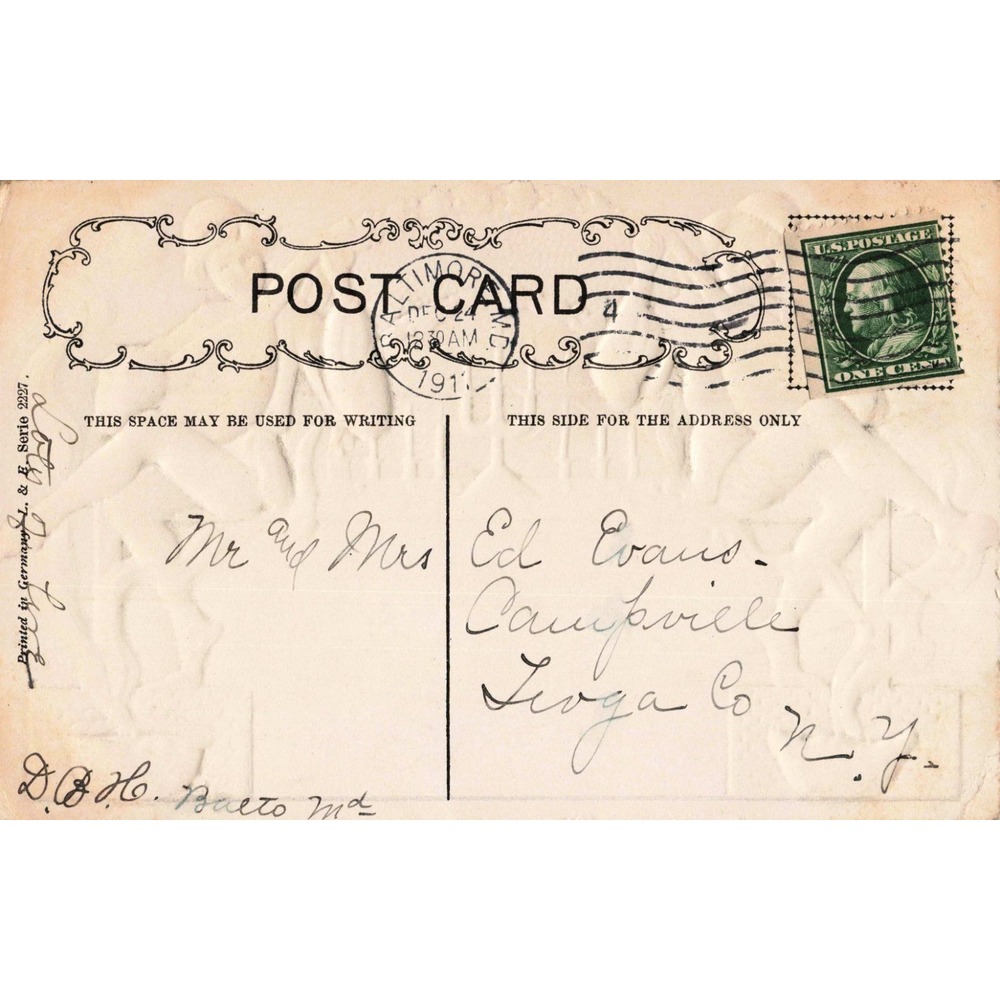 POST CARD
BALTIMORE, MD.
DEC 24
1230AM
1911
4
U.S. POSTAGE
ONE CENT
THIS SPACE MAY BE USED FOR WRITING
THIS SIDE FOR THE ADDRESS ONLY
Printed in Germany. L. & E. Serie 2227.
Lots of Love
Mr and Mrs Ed Evans.
Campville
Tioga Co
N. Y.
D. B. H. Balto Md